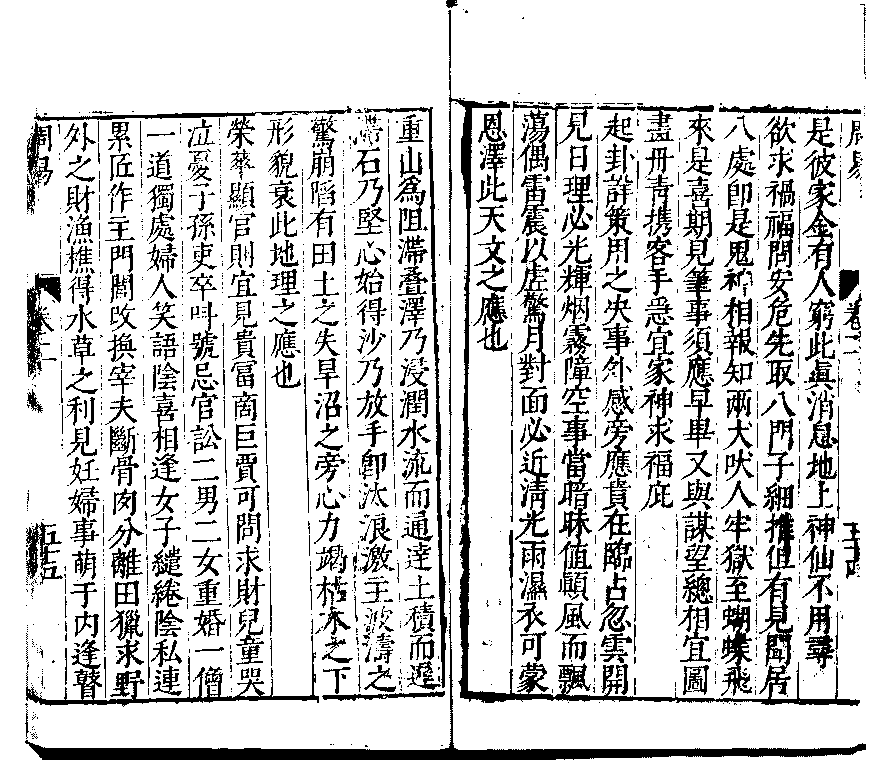 周易 卷二 五十四
是彼家金有人窮此眞消息地上神仙不用尋
欲求禍福問安危先取八門子細推但有見聞居
八處卽是鬼神相報知兩犬吠人牢獄至蝴蝶飛
來是喜期見筆事須應早畢又與謀望總相宜圖
畫丹青携客手急宜家神求福庇
起卦詳策用之央事外感旁應貴在臨占忽雲開
見日理必光輝烟霧障空事當暗昧值顛風而飄
蕩偶雷震以虛驚月對面必近淸光雨濕衣可蒙
恩澤此天文之應也
重山爲阻滯叠澤乃浸潤水流而通逹土積而遲
滯石乃堅心始得沙乃放手卽汰浪激主波濤之
驚崩陷有田土之失旱沼之旁心力竭枯木之下
形貌衰此地理之應也
榮華顯官則宜見貴冨商巨賈可問求財兒童哭
泣憂子孫吏卒呌號忌官訟二男二女重婚一僧
一道獨處婦人笑語陰喜相逢女子繾綣陰私連
累匠作主門閭改換宰夫斷骨肉分離田獵求野
外之財漁樵得水草之利見妊婦事萌于内逢瞽
周易 卷二 五十五